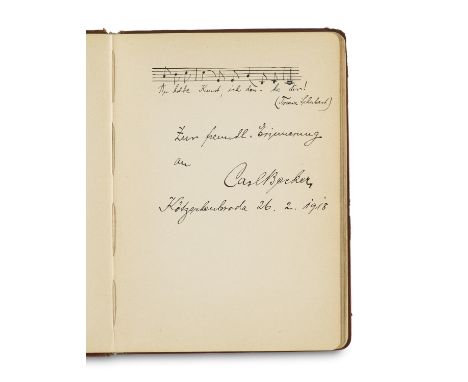 Du holde Kunst, ich dan-ke dir!
(Franz Schubert)
Zur freundl. Erinnerung
an
Carl Becker,
Kötzschenbroda 26. 2. 1918